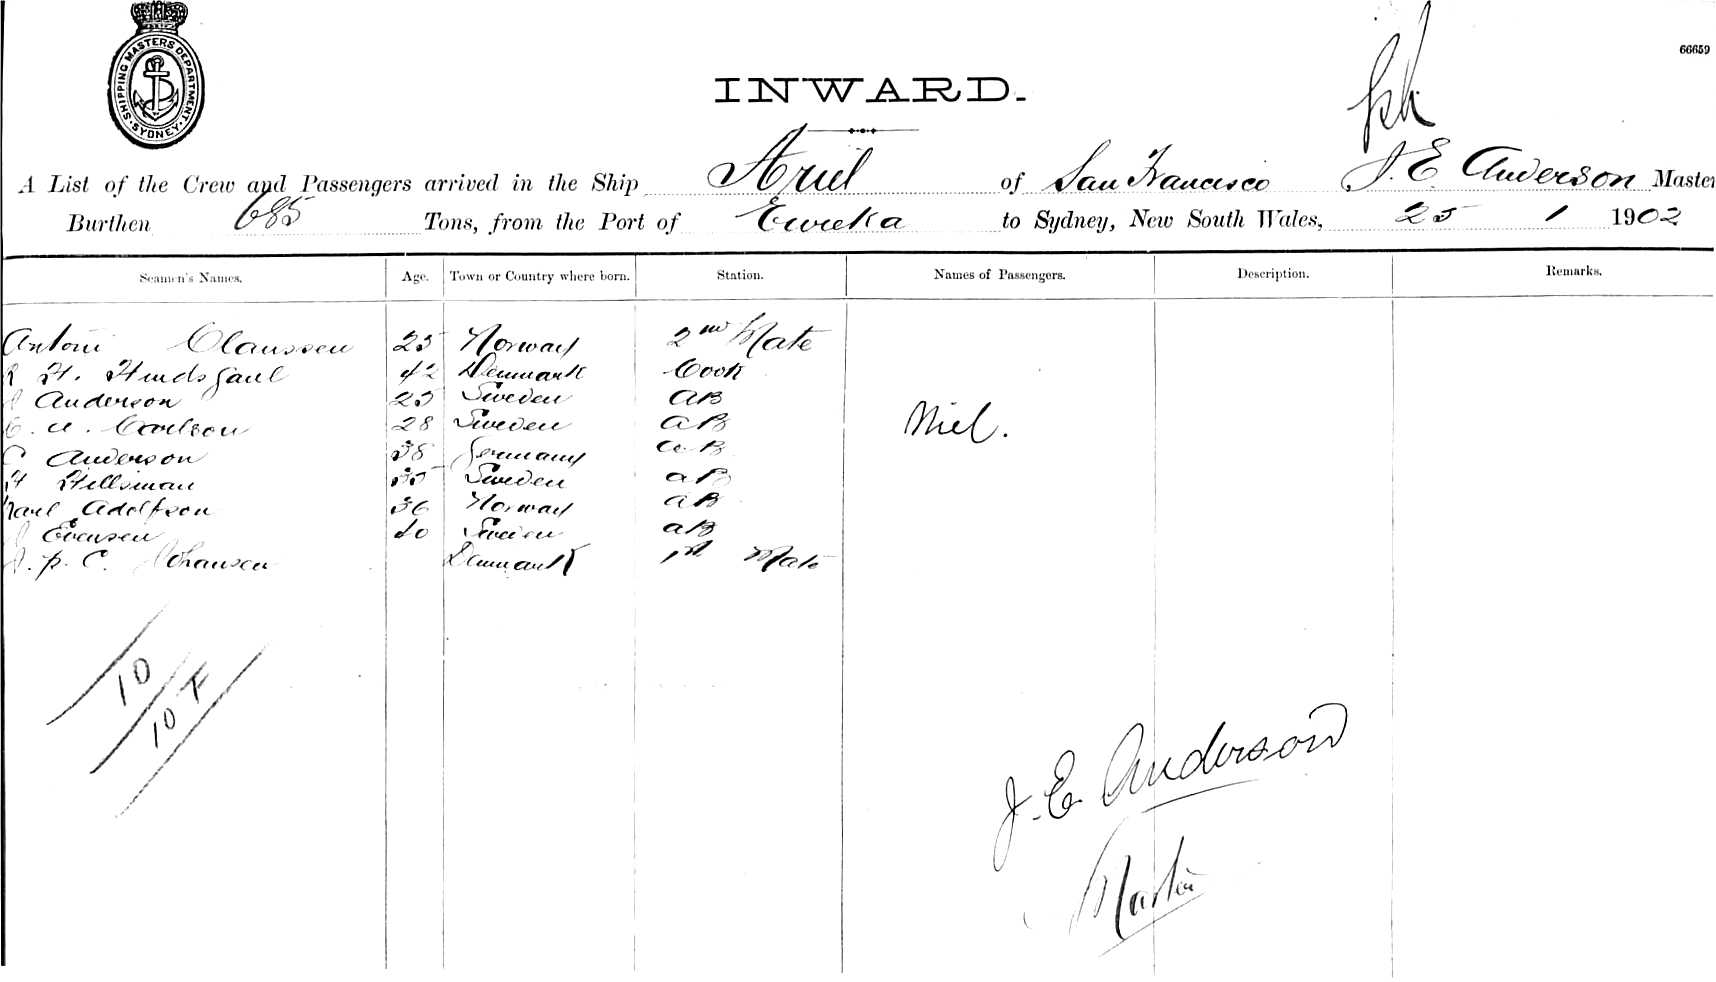 SHIPPING MASTERS DEPARTMENT. SYDNEY
66659
INWARD.
A List of the Crew and Passengers arrived in the Ship Ariel of San Francisco J. E. Anderson Master
Burthen 685 Tons, from the Port of Eureka to Sydney, New South Wales, 25 1 1902
Seamen's Names. Age. Town or Country where born. Station. Names of Passengers. Description. Remarks.
Antoni Claussen 25 Norway 2nd Mate
H. Hindsgaul 42 Denmark Cook
Anderson 25 Sweden AB
C. A. Carlson 28 Sweden AB
Niel.
C Anderson 38 Germany AB
H Hillsman 35 Sweden AB
Karl Adolfson 36 Norway AB
Evensen 40 Sweden AB
P. C. Johansen Denmark 1st Mate
10
10 F
J. E. Anderson
Master